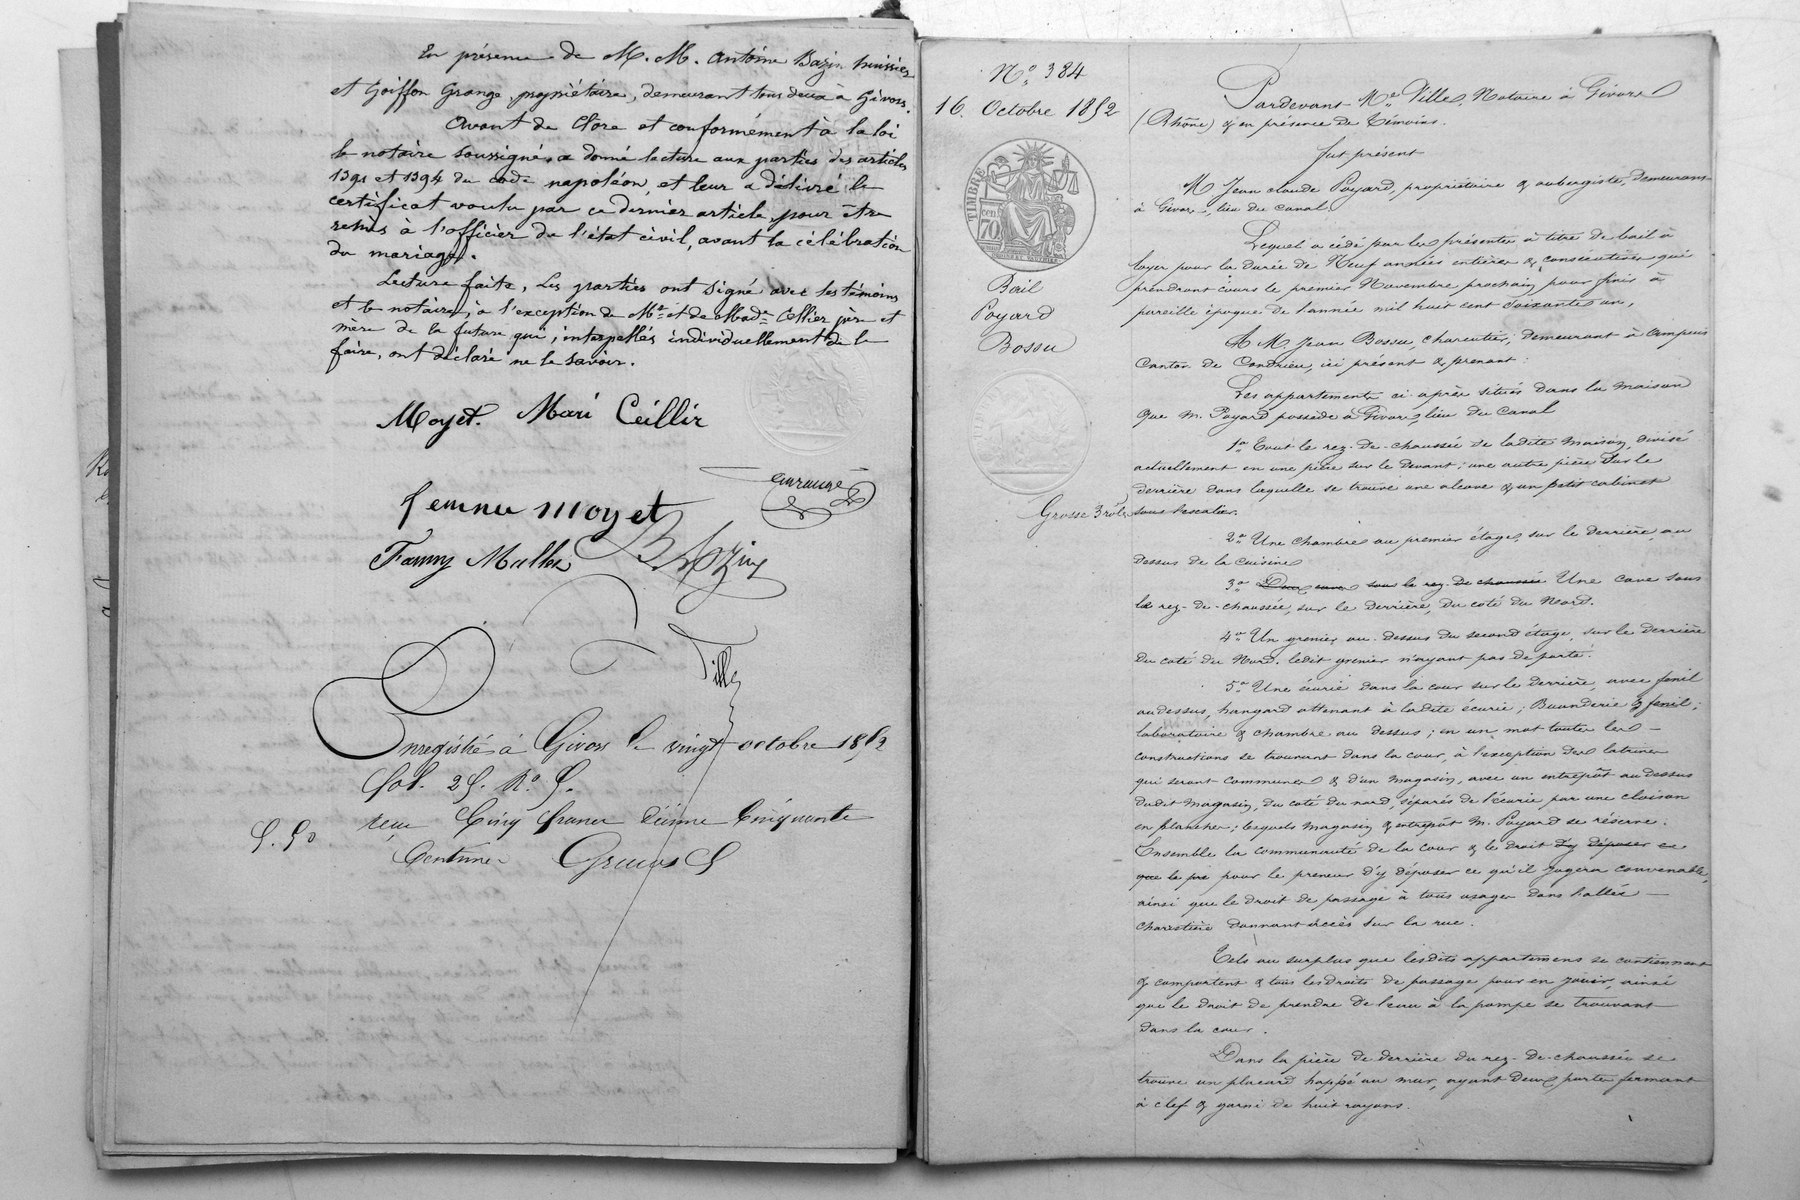 En présence de M. M. Antoine Bazin huissier
et Goiffon Grange, propriétaire, demeurant tous deux à Givors.
Avant de clore et conformément à la loi
le notaire soussigné a donné lecture aux parties des articles
1391 et 1394 du code napoléon, et leur a délivré le
certificat voulu par ce dernier article, pour être
remis à l'officier de l'état civil, avant la célébration
du mariage.
Lecture faite, les parties ont signé avec les témoins
et le notaire, à l'exception de Mr et de Made Cellier père et
mère de la future qui, interpellés individuellement de le
faire, ont déclaré ne le savoir.
Moyet. Mari Ceillir
femme moyet
Fanny Mullea
Bazin
Ville
Enregistré à Givors le vingt octobre 1852
fol. 25. Ro. 5.
5.50 reçu Cinq francs dixme Cinquante
Centimes
No 384
16. Octobre 1852
TIMBRE
70 cen
Bail
Poyard
Bossu
Grosse 3 rôles
Pardevant Me Ville, Notaire à Givors
(Rhône) & en présence de témoins.
fut présent
M Jean claude Poyard, propriétaire & aubergiste, demeurant
à Givors, lieu du canal.
Lequel a cédé par les présentes à titre de bail à
loyer pour la durée de Neuf années entières & consécutives qui
prendront cours le premier Novembre prochain pour finir à
pareille époque de l'année mil huit cent soixante un,
A M. Jean Bossu, charcutier, demeurant à ampuis
Canton de Condrieu, ici présent & prenant:
Les appartements ci après situés dans la maison
que m. Poyard possède à Givors, lieu du Canal
1o Tout le rez-de-chaussée de ladite maison, divisé
actuellement en une pièce sur le devant; une autre pièce sur le
derrière dans laquelle se trouve une alcove & un petit cabinet
sous l'escalier.
2o Une chambre au premier étage, sur le derrière au
dessus de la cuisine
3o Deux caves sous le rez-de chaussée Une cave sous
le rez-de-chaussée, sur le derrière, du coté du Nord.
4o Un grenier au-dessus du second étage, sur le derrière
du coté du Nord. ledit grenier n'ayant pas de porte.
5o Une écurie dans la cour sur le derrière, avec fenil
au dessus, hangard attenant à ladite écurie; Buanderie & fenil;
laboratoire & chambre au dessus; en un mot toutes les
constructions se trouvant dans la cour, à l'exception des latrines
qui seront communes & d'un magasin, avec un entrepôt au dessus
dudit magasin, du coté du nord, séparés de l'écurie par une cloison
en plancher; lesquels magasin & entrepôt M. Poyard se réserve.
Ensemble la communauté de la cour & le droit d'y déposer ce
que le pre pour le preneur d'y déposer ce qu'il jugera convenable,
ainsi que le droit de passage à tous usages dans l'allée
charretière donnant accès sur la rue.
Tels au surplus que lesdits appartements se contiennent
& comportent & tous les droits de passage pour en jouir, ainsi
que le droit de prendre de l'eau à la pompe se trouvant
dans la cour.
Dans la pièce de derrière du rez-de-chaussée se
trouve un placard happé au mur, ayant deux portes fermant
à clef & garni de huit rayons.